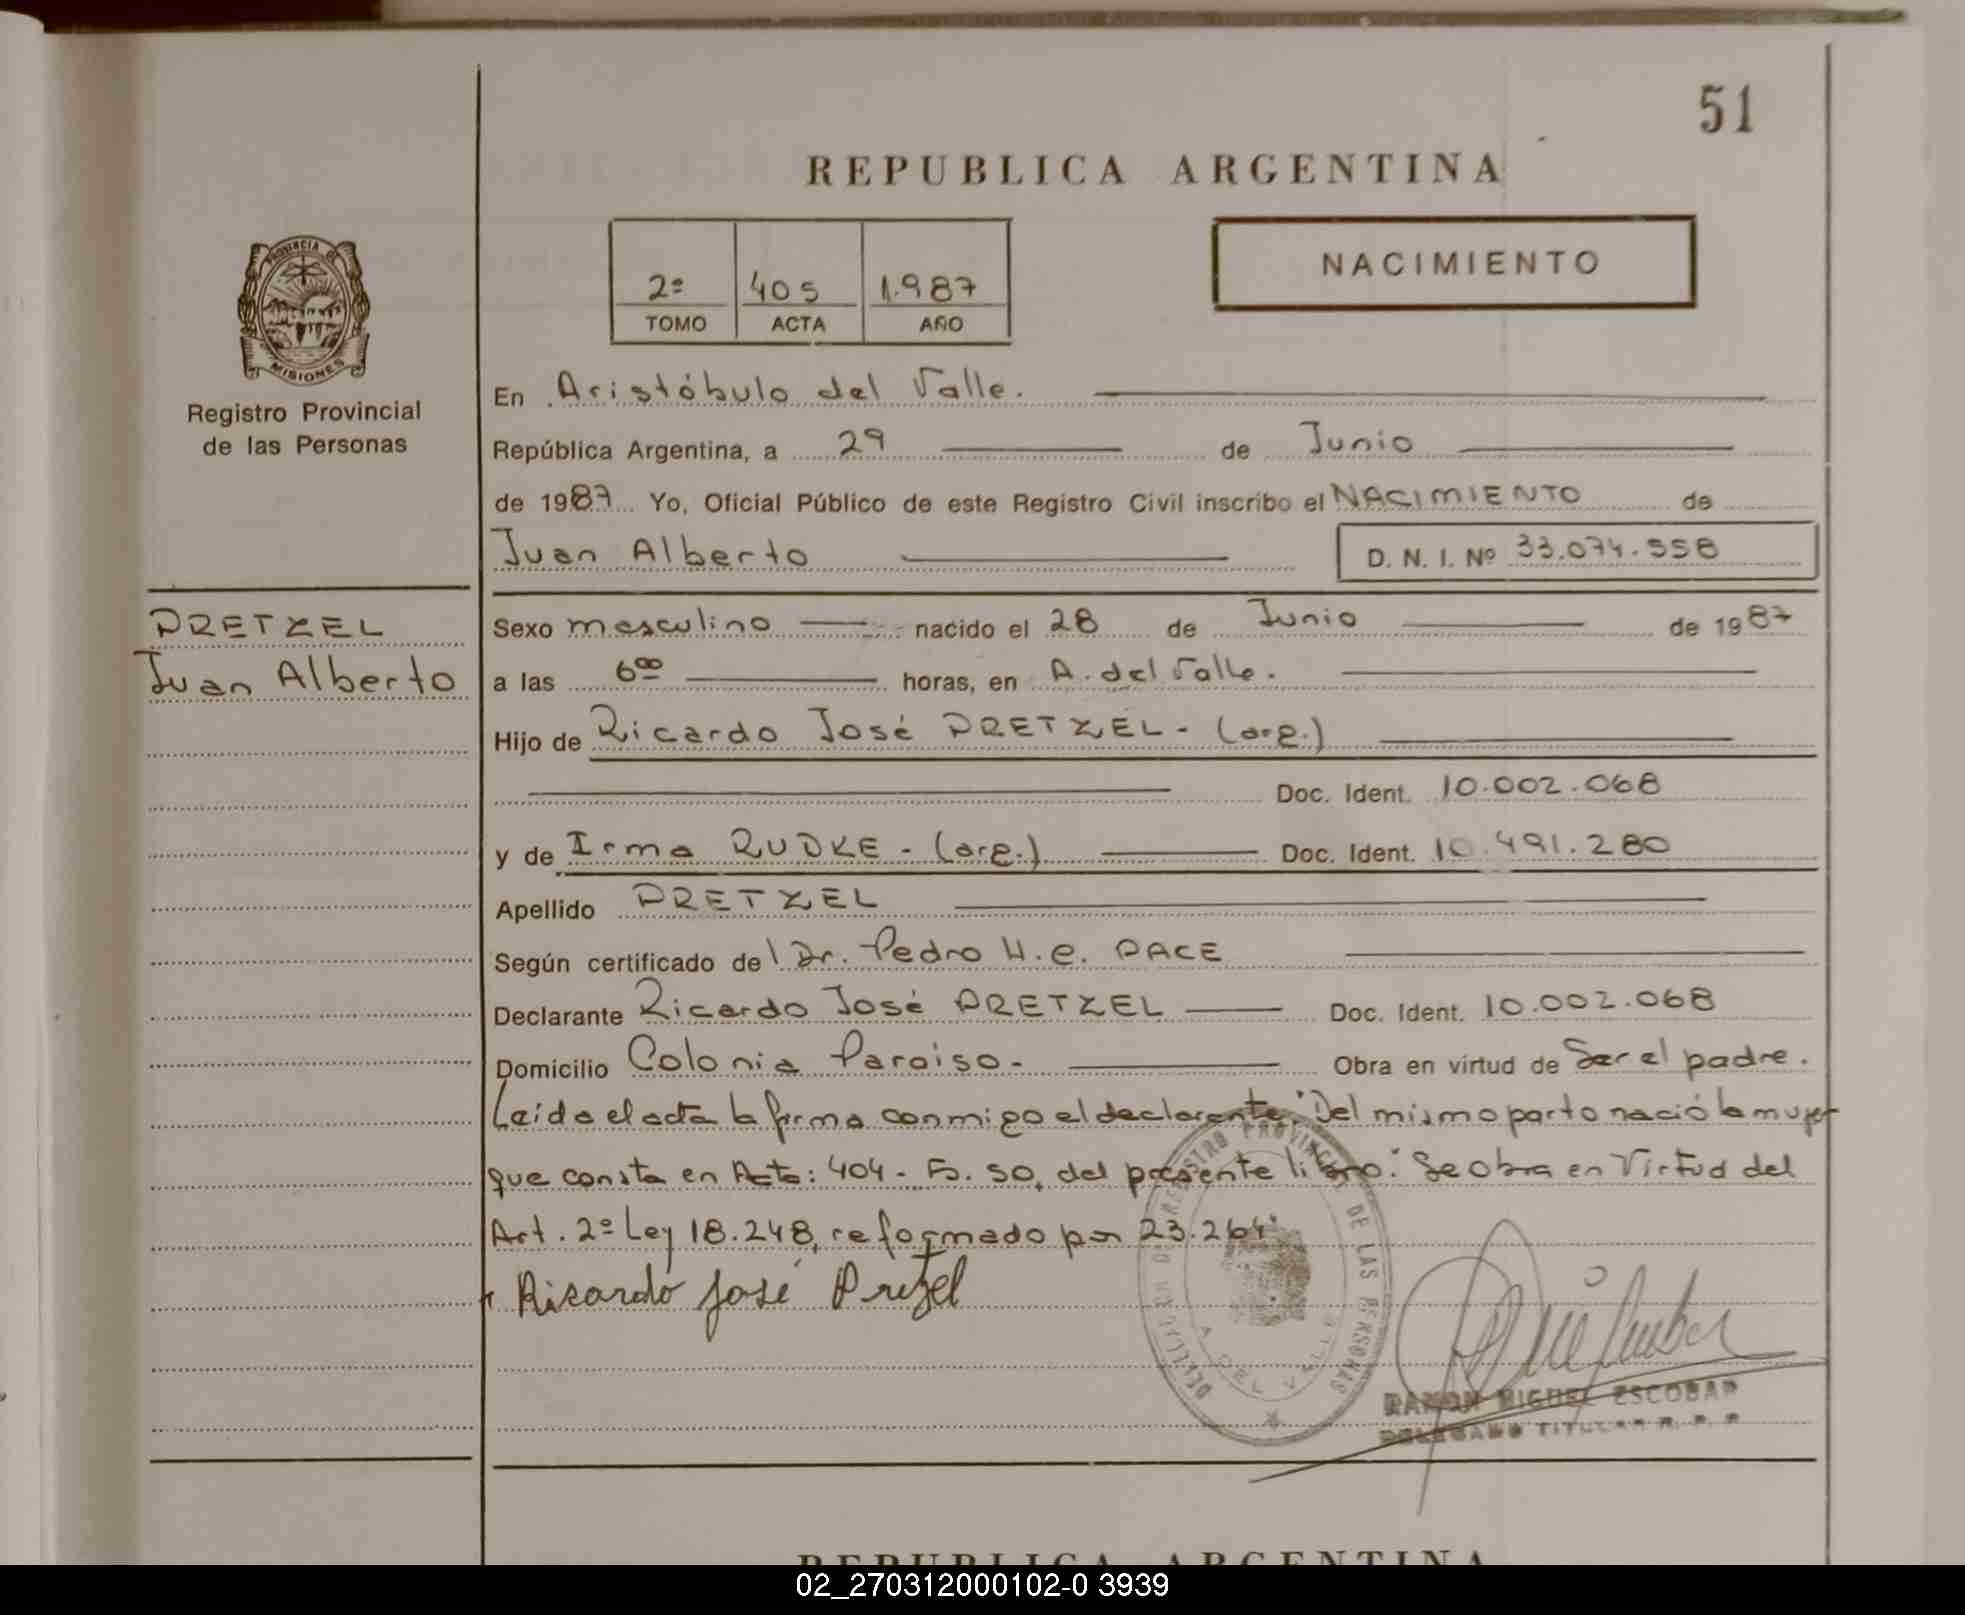 51
REPUBLICA ARGENTINA
2º 405 1.987
TOMO ACTA AÑO
NACIMIENTO
PROVINCIA DE
MISIONES
Registro Provincial
de las Personas
En Aristóbulo del Valle.
República Argentina, a 29 de Junio
de 1987 Yo, Oficial Público de este Registro Civil inscribo el NACIMIENTO de
Juan Alberto D. N. I. Nº 33.074.558
PRETZEL
Juan Alberto
Sexo masculino nacido el 28 de Junio de 1987
a las 600 horas, en A. del Valle.
Hijo de Ricardo José PRETZEL - (arg.)
Doc. Ident. 10.002.068
y de Irma RUDKE - (arg.) Doc. Ident. 10.491.280
Apellido PRETZEL
Según certificado del Dr. Pedro H. C. PACE
Declarante Ricardo José PRETZEL Doc. Ident. 10.002.068
Domicilio Colonia Paraiso - Obra en virtud de Ser el padre.
Leida el acta la firma conmigo el declarante. "Del mismo parto nació la mujer
que consta en Acta: 404 - Fº. 50, del presente libro". "Se obra en Virtud del
Art. 2º Ley 18.248, reformado por 23.264"
Ricardo José Pretzel
DELEGACION REGISTRO PROVINCIAL DE LAS PERSONAS
A. DEL VALLE
RAMON MIGUEL ESCOBAR
DELEGADO TITULAR R. P. P.
REPUBLICA ARGENTINA
02_270312000102-0 3939